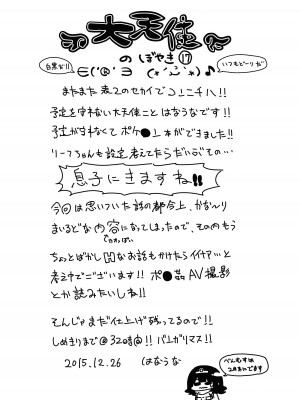 大天使
のぼやき⑰
白黒だ!!
いつもどーりだ
またまた裏のセカイでコンニチハ!!
予定を守れない大天使ことはなうなです!!
予定が守れなくてポケ●ン本ができました!!
リーフちゃんも設定考えてたらだいぶその…
息子にきますね!!
今回は思いついた話の都合上、かな〜り
まいるどな内容になってしまったので、その内もう
ちょっとばかしHなお話もかけたらイイナァ…と
考え中でございます!! ポ●品AV撮影
とか読みたいしね!!
そんじゃまだ仕上げ残ってるので!!
しめきりまで@32時間!! バンガリマス!!
2015.12.26 はなうな
2本立てます